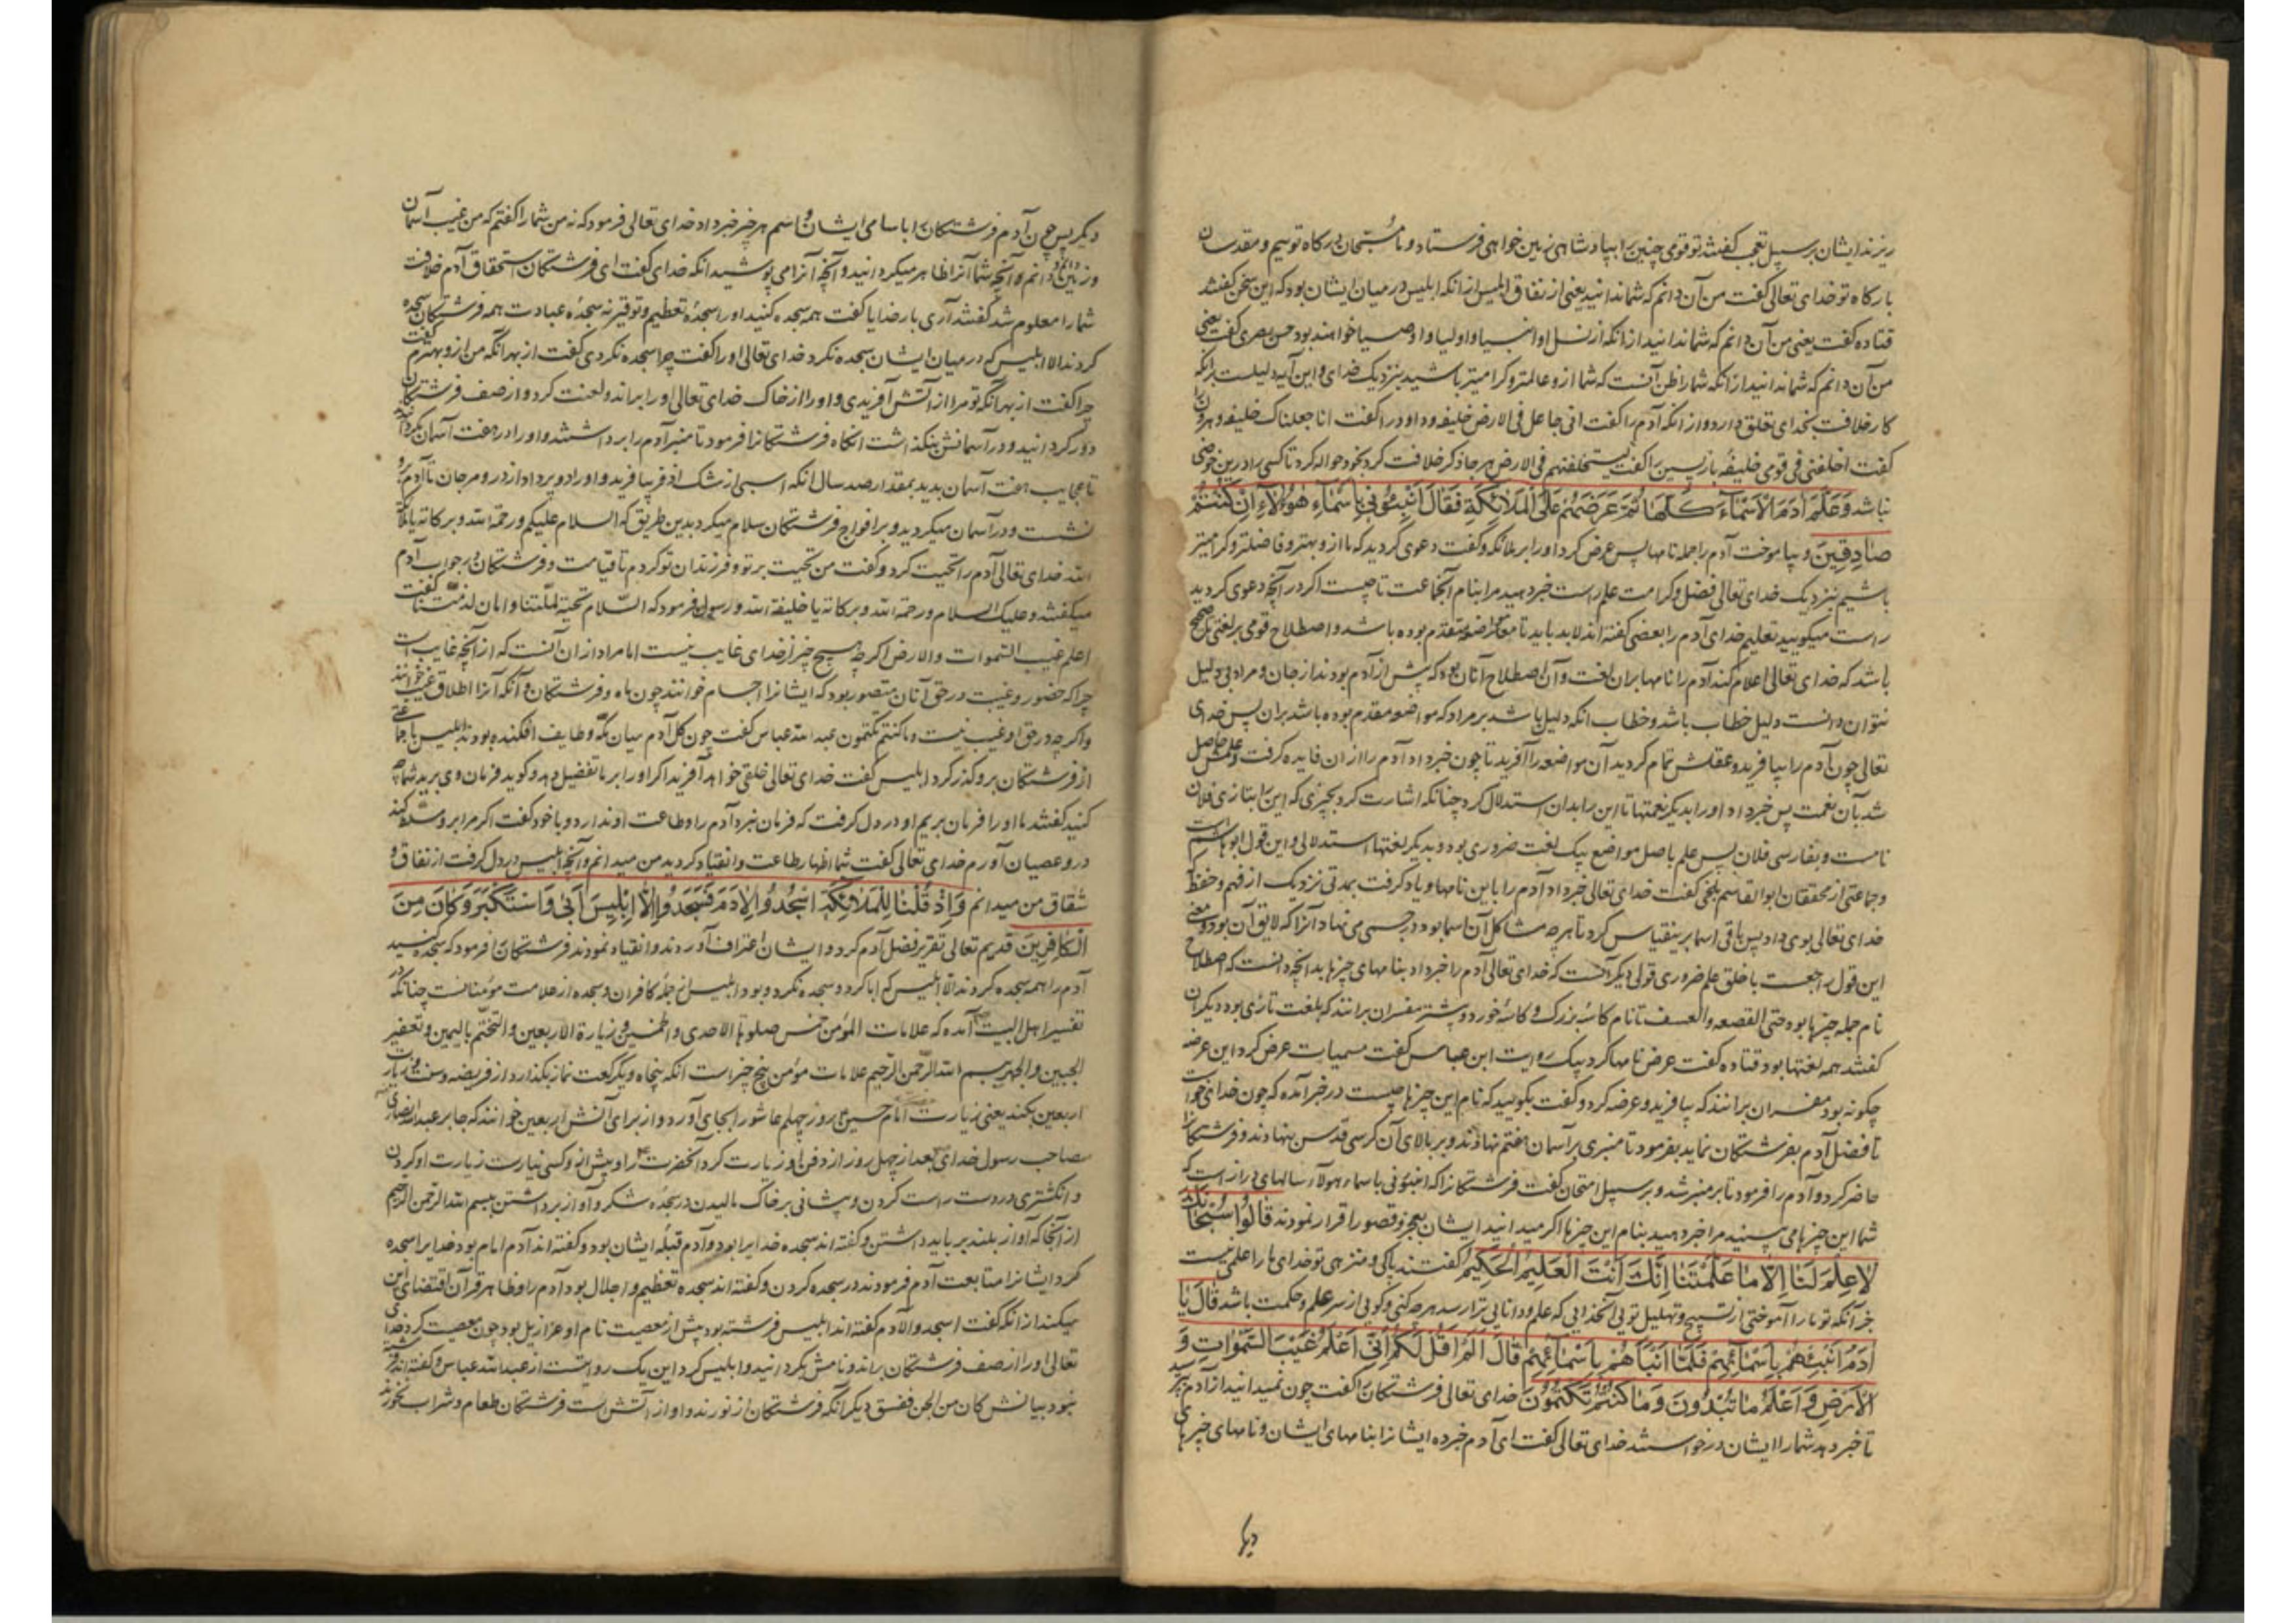 ریزند ایشان بر سبیل تعجب گفتند تو قومی چنین را بپادشاهی زمین خواهی فرستاد و ما مسبحان درگاه توییم و مقدسان
بارگاه تو خدای تعالی گفت من آن دانم که شما ندانید یعنی از نفاق ابلیس از انکه ابلیس در میان ایشان بود که این سخن گفتند
قتاده گفت یعنی من آن دانم که شما ندانید از انکه از نسل او انبیا و اولیا و اوصیا خواهند بود حسن بصری گفت یعنی
من آن دانم که شما ندانید از انکه شما را ظن آنست که شما ازو عالمتر و گرامیتر باشید بنزدیک خدای و این آیه دلیلست برانکه
کار خلافت بخدای تعلق دارد و از انکه آدم را گفت انی جاعل فی الارض خلیفه و داود را گفت انا جعلناک خلیفه و هرون را
گفت اخلفنی فی قومی خلیفه بازپسین را گفت لیستخلفنهم فی الارض هر جا ذکر خلافت کرد بخود حواله کرد تا کسی را درین خوضی
نباشد وَعَلَّمَ آدَمَ الْأَسْمَاءَ كُلَّهَا ثُمَّ عَرَضَهُمْ عَلَى الْمَلَائِكَةِ فَقَالَ أَنْبِئُونِي بِأَسْمَاءِ هَؤُلَاءِ إِنْ كُنْتُمْ
صَادِقِينَ و بیاموخت آدم را جمله نامها پس عرض کرد او را بر ملائکه و گفت دعوی کردید که ما ازو بهتر و فاضلتر و گرامیتر
باشیم بنزدیک خدای تعالی فضل و کرامت علم راست خبر دهید مرا بنام آنجماعت تا چیست اگر در آنچه دعوی کردید
راست میگویید تعلیم خدای آدم را بعضی گفته اند لابد باید تا مواضعه متقدم بوده باشد و اصطلاح قومی بر لغتی تا صحیح
باشد که خدای تعالی اعلام کند آدم را نامها بران لغت و آن اصطلاح آنان بود که پیش از آدم بودند از جان و مراد بی دلیل
نتوان دانست دلیل خطاب باشد و خطاب انکه دلیل باشد بر مراد که مواضعه مقدم بوده باشد بران پس خدای
تعالی چون آدم را بیافرید و عقلش تمام گردید آن مواضعه را آفرید تا چون خبر داد آدم را از ان فایده گرفت و علمش حاصل
شد بآن نعمت پس خبر داد او را بدیگر نعمتها تا این را بدان استدلال کرد چنانکه اشارت کرد بچیزی که این را بتازی فلان
نامست و بفارسی فلان پس علم باصل مواضع بیک لغت ضروری بود و بدیگر لغتها استدلالی و این قول ابو هاشم است
و جماعتی از محققان ابو القاسم بلخی گفت خدای تعالی خبر داد آدم را باین نامها و یاد گرفت بمدتی نزدیک از فهم و حفظ
خدای تعالی بوی داد پس باقی اسما برینقیاس کرد تا هر چه مشاکل آن اسما بود در جسمی می نهاد آنرا که لایق آن بود و معنی
این قول راجعست باخلق علم ضروری قولی دیگر آنست که خدای تعالی آدم را خبر داد بنامهای چیزها بدانچه دانست که اصطلاح
نام جمله چیزها بود حتی القصعه و العسف تا نام کاسه بزرگ و کاسه خورد و بیشتر مفسران برانند که بلغت تازی بود دیگران
گفتند همه لغتها بود قتاده گفت عرض نامها کرد بیک روایت ابن عباس گفت مسمیات عرض کرد این عرضه
چگونه بود مفسران برانند که بیافرید و عرضه کرد و گفت بگویید که نام این چیزها چیست در خبر آمده که چون خدا می خواست
تا فضل آدم بفرشتگان نماید بفرمود تا منبری بر آسمان هفتم نهادند و بر بالای آن کرسی قدس بنهادند و فرشتگانرا
حاضر کرد و آدم را فرمود تا بر منبر شد و بر سبیل امتحان گفت فرشتگانرا که انبئونی باسماء هولاء سالهای دراز است که
شما این چیزها می بینید مرا خبر دهید بنام این چیزها اگر میدانید ایشان بعجز و قصور اقرار نمودند قَالُوا سُبْحَانَكَ
لَا عِلْمَ لَنَا إِلَّا مَا عَلَّمْتَنَا إِنَّكَ أَنْتَ الْعَلِيمُ الْحَكِيمُ گفتند پاکی و منزهی تو خدای ما را علمی نیست
جز آنکه تو ما را آموختی از تسبیح و تهلیل تویی آنخدایی که علم و دانایی ترا رسد هر چه کنی و گویی از سر علم و حکمت باشد قَالَ يَا
آدَمُ أَنْبِئْهُمْ بِأَسْمَائِهِمْ فَلَمَّا أَنْبَأَهُمْ بِأَسْمَائِهِمْ قَالَ أَلَمْ أَقُلْ لَكُمْ إِنِّي أَعْلَمُ غَيْبَ السَّمَوَاتِ وَ
الْأَرْضِ وَأَعْلَمُ مَا تُبْدُونَ وَمَا كُنْتُمْ تَكْتُمُونَ خدای تعالی فرشتگانرا گفت چون نمیدانید از آدم بپرسید
تا خبر دهد شما را ایشان درخواستند خدای تعالی گفت ای آدم خبر ده ایشانرا بنامهای ایشان و نامهای چیزهای
دیگر
دیگر پس چون آدم فرشتگانرا باسامی ایشان و اسم هر چیز خبر داد خدای تعالی فرمود که نه من شما را گفتم که من غیب آسمان
و زمین دانم و آنچه شما آنرا ظاهر میگردانید و آنچه آنرا می پوشید انکه خدای گفت ای فرشتگان استحقاق آدم خلافت
شما را معلوم شد گفتند آری بار خدایا گفت همه سجده کنید او را سجده تعظیم و توقیر نه سجده عبادت همه فرشتگان سجده
کردند الا ابلیس که در میان ایشان سجده نکرد خدای تعالی او را گفت چرا سجده نکردی گفت از بهر آنکه من ازو بهترم گفت
چرا گفت از بهر آنکه تو مرا از آتش آفریدی و او را از خاک خدای تعالی او را براند و لعنت کرد و از صف فرشتگان
دور گردانید و در آسمانش نگذاشت انگاه فرشتگانرا فرمود تا منبر آدم را برداشتند و او را در هفت آسمان بگردانیدند
تا عجایب هفت آسمان بدید بمقدار صد سال انکه اسبی از مشک اذفر بیافرید و او را دو پر داد از در و مرجان تا آدم برو
نشست و در آسمان میگردید و بر افواج فرشتگان سلام میکرد بدین طریق که السلام علیکم و رحمة الله و برکاته یا ملائکة
الله خدای تعالی آدم را تحیت کرد و گفت من تحیت بر تو و فرزندان تو کردم تا قیامت و فرشتگان در جواب آدم
میگفتند و علیک السلام و رحمة الله و برکاته یا خلیفة الله و رسول فرمود که السلام تحیة لملتنا و امان لذمتنا گفت
اعلم غیب السموات والارض اگر چه هیچ چیز از خدای غایب نیست اما مراد از ان آنست که از آنچه غایب است
چرا که حضور و غیبت در حق آنان متصور بود که ایشانرا اجسام خوانند چون ما و فرشتگان و آنکه آنرا اطلاق غیب خوانند
و اگر چه در حق او غیب نیست و ما کنتم تکتمون عبد الله عباس گفت چون گل آدم میان مکه و طایف افکنده بودند ابلیس با جماعتی
از فرشتگان برو گذر کرد ابلیس گفت خدای تعالی خلقی خواهد آفرید اگر او را بر ما تفضیل دهد و گوید فرمان وی برید شما چه
کنید گفتند ما او را فرمان بریم او در دل گرفت که فرمان نبرد آدم را و طاعت او ندارد و با خود گفت اگر مرا برو مسلط کند
درو عصیان آورم خدای تعالی گفت شما اظهار طاعت و انقیاد کردید من میدانم و آنچه ابلیس در دل گرفت از نفاق و
شقاق من میدانم وَإِذْ قُلْنَا لِلْمَلَائِكَةِ اسْجُدُوا لِآدَمَ فَسَجَدُوا إِلَّا إِبْلِيسَ أَبَى وَاسْتَكْبَرَ وَكَانَ مِنَ
الْكَافِرِينَ قدیم تعالی تقریر فضل آدم کرد و ایشان اعتراف آوردند و انقیاد نمودند فرشتگانرا فرمود که سجده کنید
آدم را همه سجده کردند الا ابلیس که ابا کرد و سجده نکرد و بود ابلیس از جمله کافران و سجده از علامت مؤمنانست چنانکه در
تفسیر اهل البیت آمده که علامات المؤمن خمس صلوة الاحدی و الخمسین و زیارة الاربعین و التختم بالیمین و تعفیر
الجبین و الجهر ببسم الله الرحمن الرحیم علامات مؤمن پنج چیز است انکه پنجاه و یک رکعت نماز بگذارد از فریضه و سنت و زیارت
اربعین بکند یعنی زیارت امام حسین روز چهلم عاشورا بجای آورد و از برای آنش اربعین خوانند که جابر عبد الله انصاری
مصاحب رسول خدای بعد از چهل روز از دفن او زیارت کرد آنحضرت را و پیش ازو کسی زیارت او کردن
و انگشتری در دست راست کردن و پیشانی بر خاک مالیدن در سجده شکر و آواز برداشتن ببسم الله الرحمن الرحیم
از آنجا که آواز بلند بر باید داشتن و گفته اند سجده خدایرا بود و آدم قبله ایشان بود و گفته اند آدم امام بود خدایرا سجده
کرد ایشانرا متابعت آدم فرمودند در سجده کردن و گفته اند سجده تعظیم و اجلال بود آدم را و ظاهر قرآن اقتضای این
میکند از انکه گفت اسجدوا لآدم گفته اند ابلیس فرشته بود پیش از معصیت نام او عزازیل بود چون معصیت کرد خدای
تعالی او را از صف فرشتگان براند و نامش بگردانید و ابلیس کرد این یک روایتست از عبد الله عباس و گفته اند فرشته
نبود بیانش کان من الجن ففسق دیگر آنکه فرشتگان از نورند و او از آتش است فرشتگان طعام و شراب نخورند